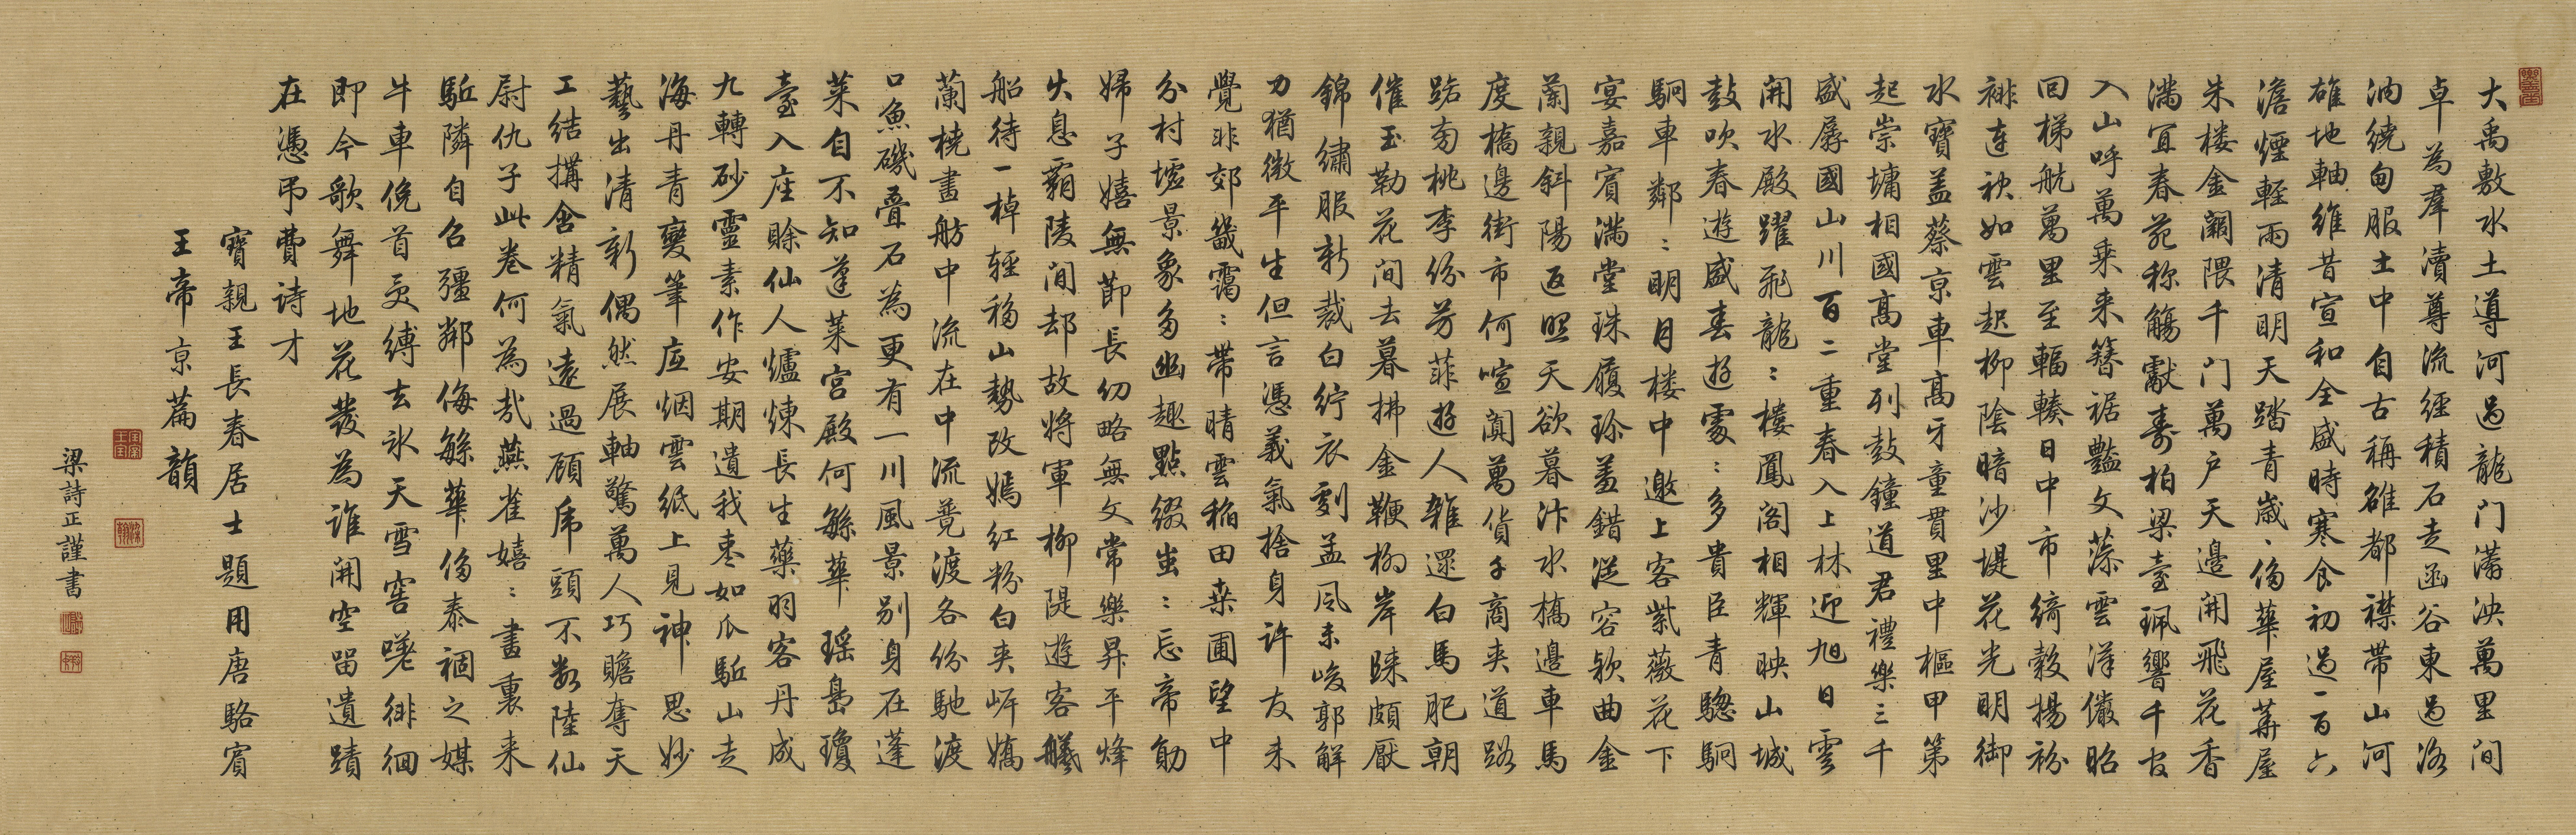 大禹敷水土導河過龍門瀰泱萬里間
卓為羣瀆尊流經積石走函谷東過洛
汭繞甸服土中自古稱雄都襟帶山河
雄地軸維昔宣和全盛時寒食初過一百六
澹煙輕雨清明天踏青歲歲侈華屋華屋
朱樓金闕隈千門萬戶天邊開飛花香
滿宜春苑称觴獻壽柏梁臺珮響千官
入山呼萬乘来簪裾豔文藻雲漢儼昭
回梯航萬里至輻輳日中市綺縠揚袀
褂連袂如雲起柳陰暗沙堤花光明御
水寶盖蔡京車高牙童貫里中樞甲第
起崇墉相國高堂列鼓鐘道君禮樂三千
盛孱國山川百二重春入上林迎旭日雲
開水殿躍飛龍龍樓鳳閣相輝映山城
鼓吹春遊盛春遊處處多貴臣青驄駉
駉車鄰鄰明月楼中邀上客紫薇花下
宴嘉賓滿堂珠履玲盖錯從容欵曲金
蘭親斜陽返照天欲暮汴水橋邊車馬
度橋邊街市何喧闐萬貨千商夾道路
路旁桃李份芳菲遊人雜還白馬肥朝
催玉勒花間去暮拂金鞭柳岸歸頗厭
錦繡服新裁白紵衣劇孟風未峻郭解
力猶微平生但言憑義氣捨身許友未
覺非郊畿靄靄帶晴雲稲田桒圃望中
分村墟景象多幽趣點綴蚩蚩忘帝勛
婦子嬉無節長幼略無文常樂昇平烽
火息覇陵間却故將軍柳隄遊客艤
船待一棹輕移山勢改嫣紅粉白夾岍嬌
蘭橈畫舫中流在中流競渡各份馳渡
口魚磯疊石為更有一川風景别身在蓬
莱自不知蓬莱宮殿何緐華瑤島瓊
臺入座賒仙人爐煉長生藥羽客丹成
九轉砂靈素作安期遺我枣如瓜駈山走
海丹青變筆底烟雲紙上見神思妙
藝出清新偶然展軸驚萬人巧贍奪天
工結搆含精氣遠過顧虎頭不数陸仙
尉仇子此卷何為哉燕雀嬉嬉畫裏来
駈隣自召彊鄰侮緐華侈泰禍之媒
牛車俛首夾縛去氷天雪窖嗟徘徊
即今歌舞地花發為誰開空留遺蹟
在憑弔費詩才
寶親王長春居士題用唐駱賓
王帝京篇韻
梁詩正謹書